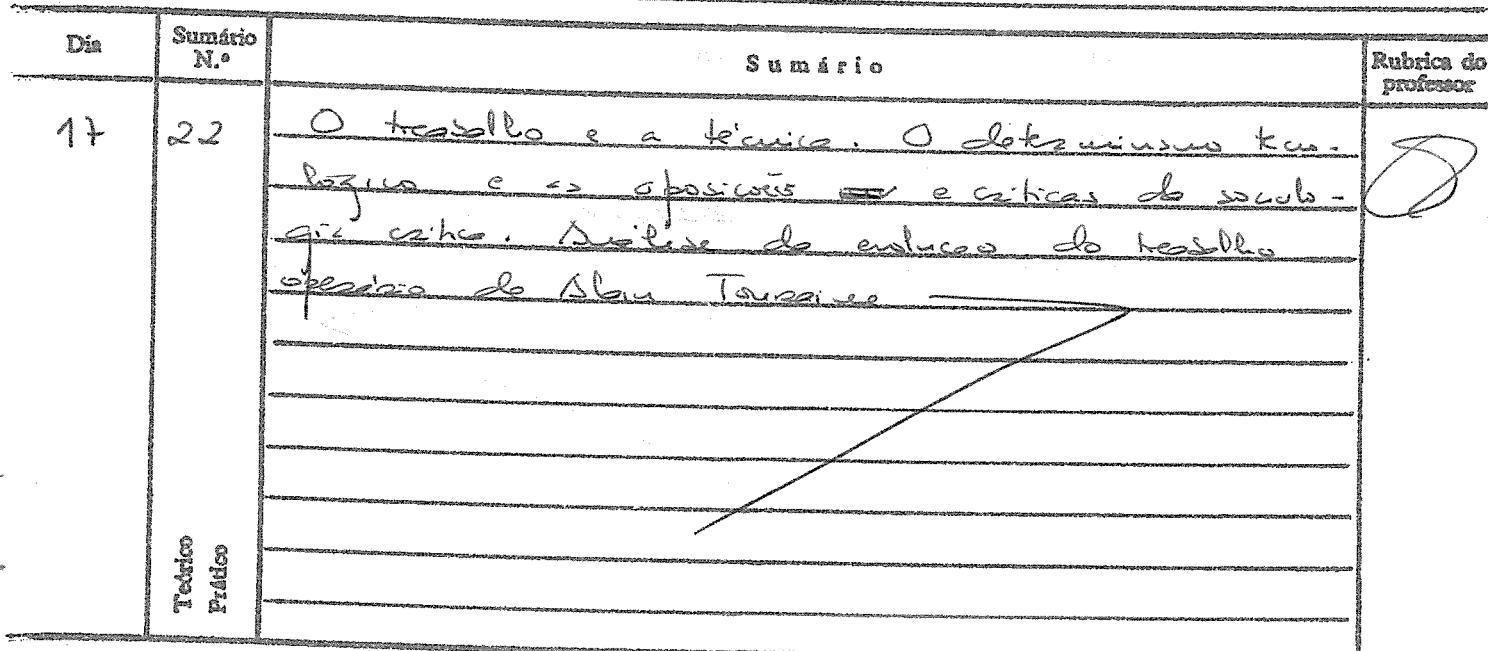 Dia
Sumário N.º
Sumário
Rubrica do professor
17
22
O trabalho e a técnica. O determinismo tecno-
lógico e as oposições e críticas da sociolo-
gia crítica. Análise da evolução do trabalho
operário de Alain Touraine
Teórico
Prático